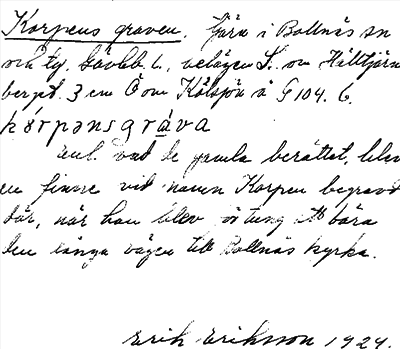 Korpens graven. Tjärn i Bollnäs sn
och tg. Gävleb. l., belägen S. om Hälltjärn
bergst. 3 cm Ö om Kölsjön å G 104. 6.
kórpənsgràva
enl. vad de gamla berättat, blev
en finne vid namn Korpen begravd
där, när han blev för tung att bära
den långa vägen till Bollnäs kyrka.
Erik Eriksson 1924.